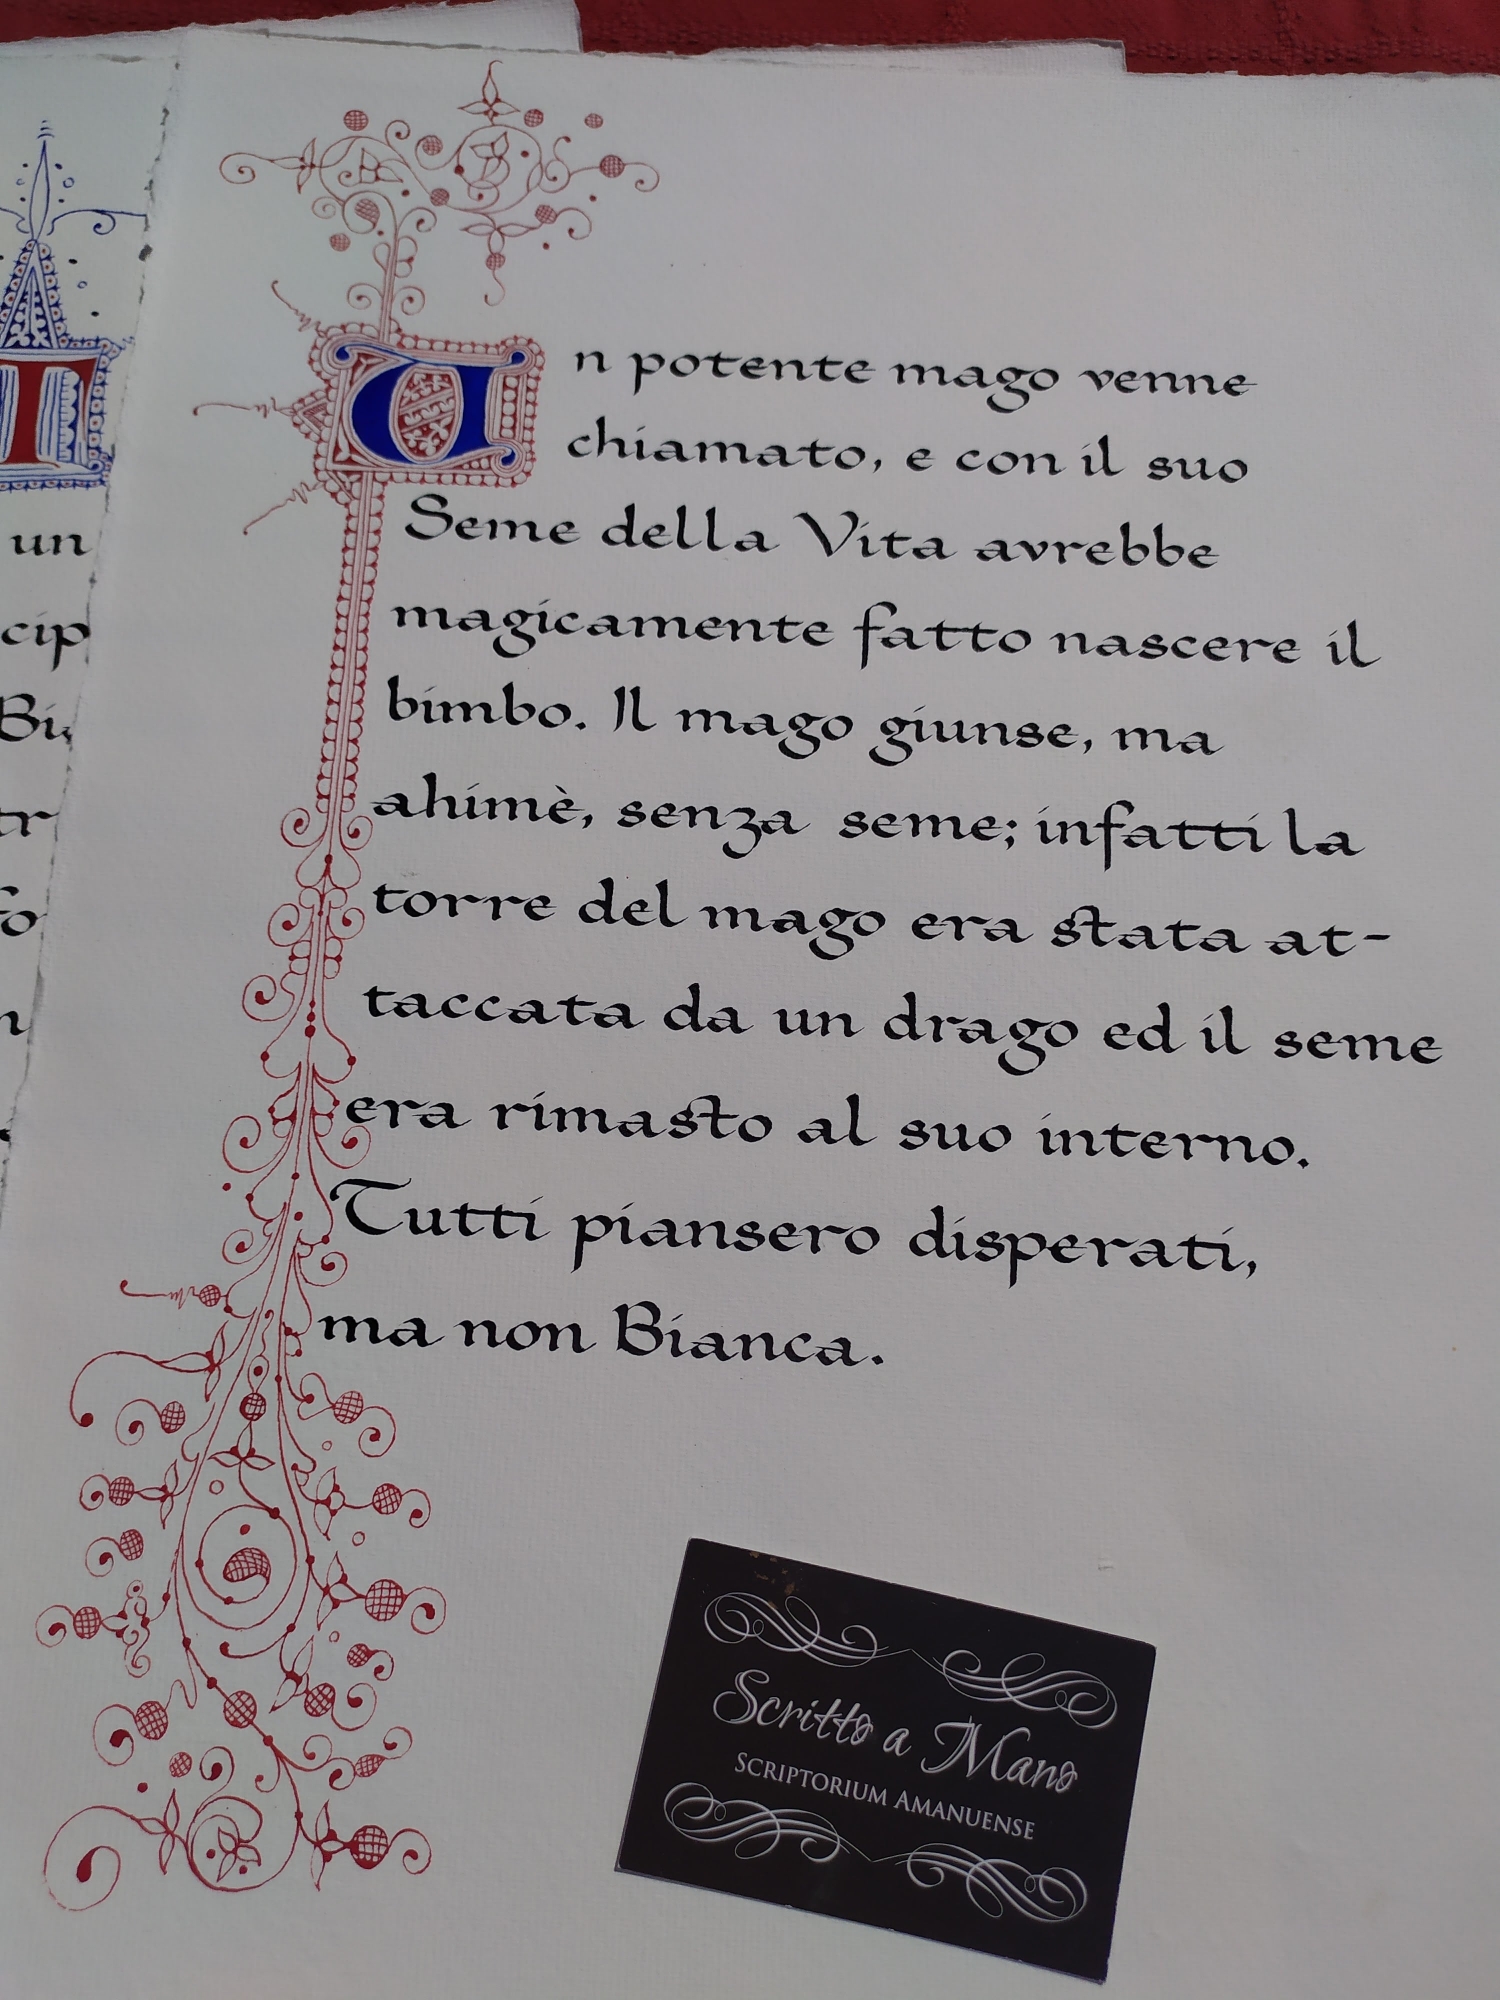 un
cip
Bi
tr
fo
n
Un potente mago venne
chiamato, e con il suo
Seme della Vita avrebbe
magicamente fatto nascere il
bimbo. Il mago giunse, ma
ahimè, senza seme; infatti la
torre del mago era stata at-
taccata da un drago ed il seme
era rimasto al suo interno.
Tutti piansero disperati,
ma non Bianca.
Scritto a Mano
SCRIPTORIUM AMANUENSE